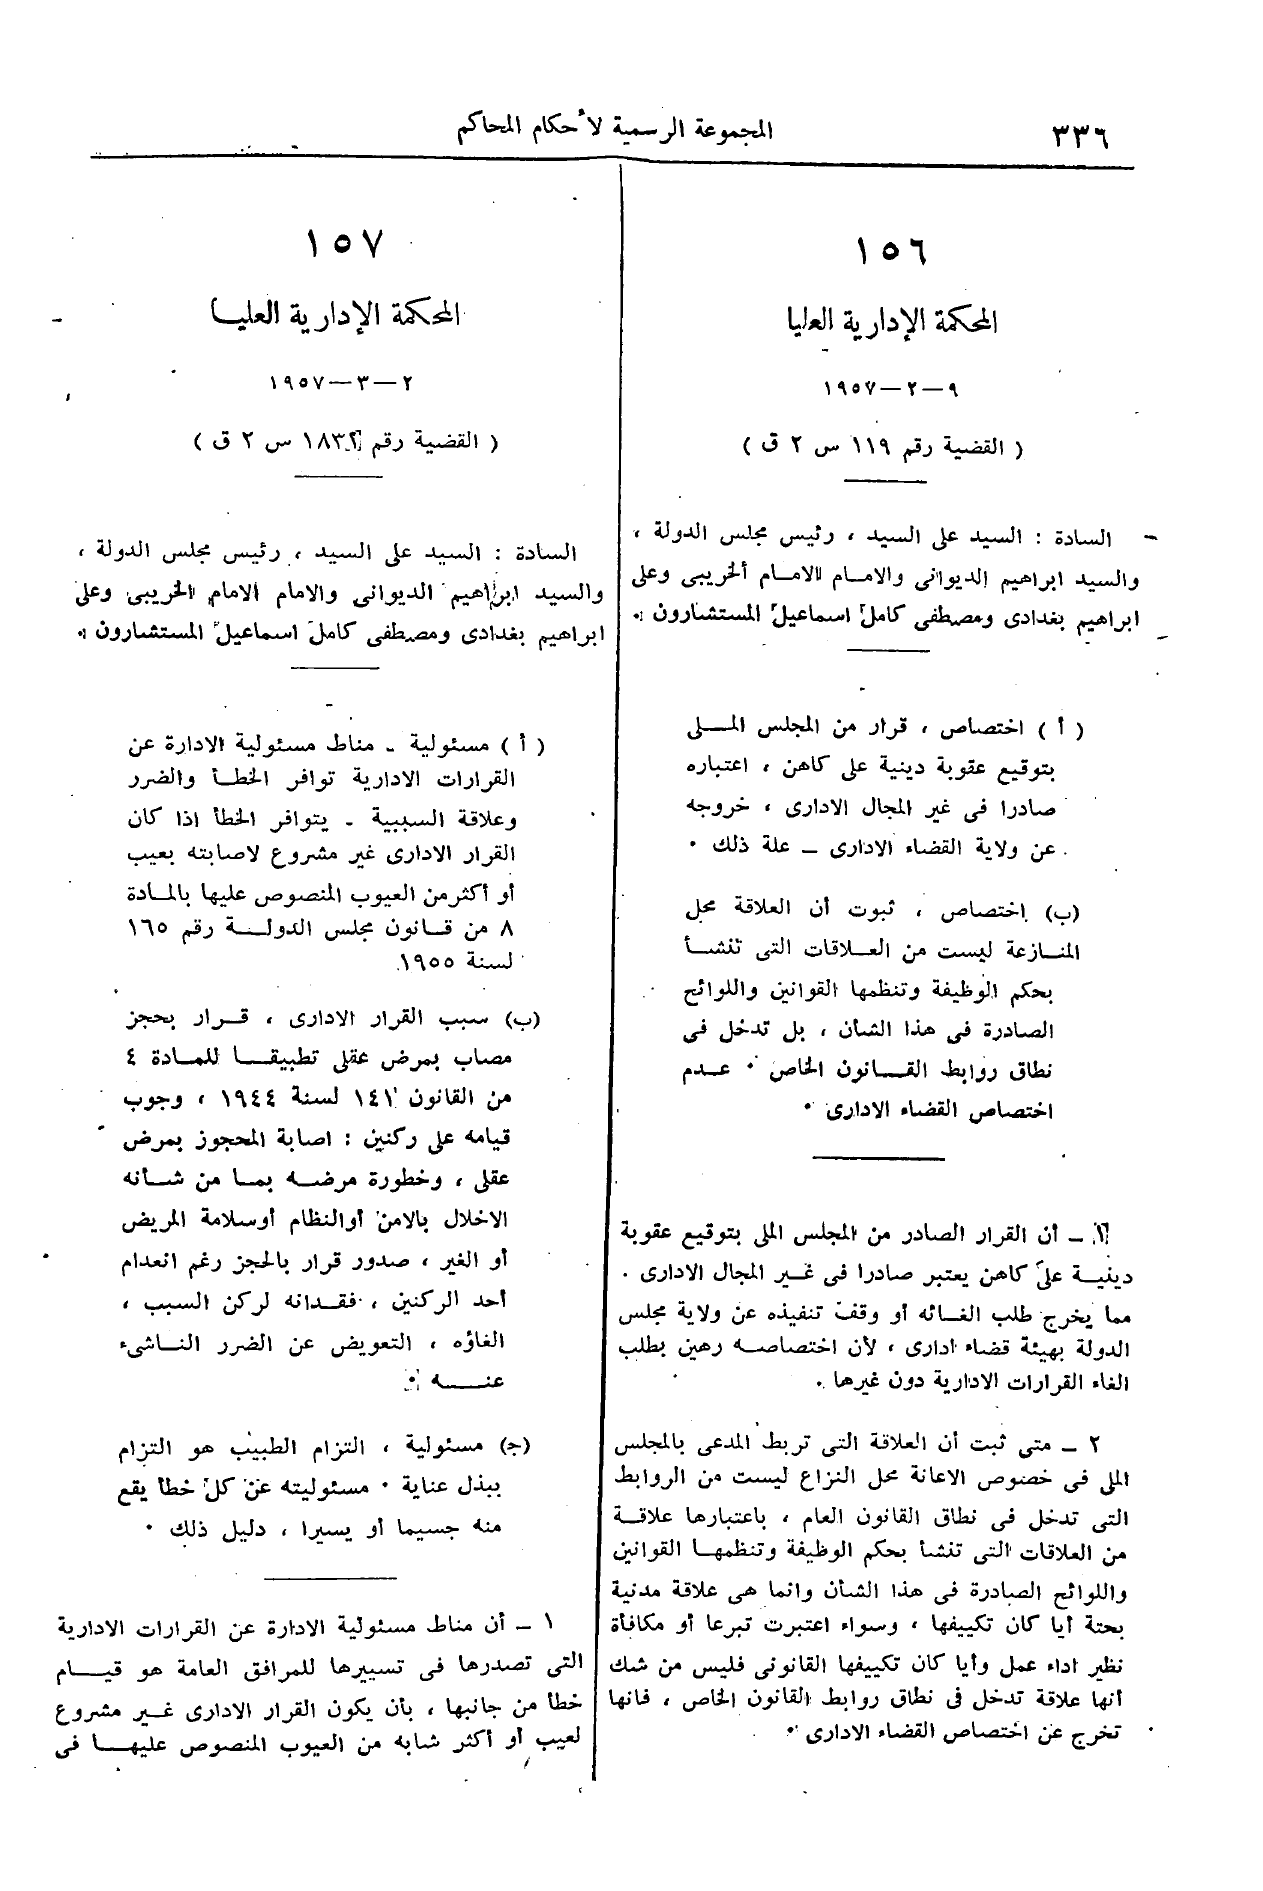 ٣٣٦
المجموعة الرسمية لأحكام المحاكم
١٥٦
المحكمة الإدارية العليا
٩ — ٢ — ١٩٥٧
( القضية رقم ١١٩ س ٢ ق )
السادة : السيد على السيد ، رئيس مجلس الدولة ،
والسيد ابراهيم الديوانى والامام الامام الخريبى وعلى
ابراهيم بغدادى ومصطفى كامل اسماعيل المستشارون .
( أ ) اختصاص ، قرار من المجلس الملى
بتوقيع عقوبة دينية على كاهن ، اعتباره
صادرا فى غير المجال الادارى ، خروجه
عن ولاية القضاء الادارى ـ علة ذلك .
(ب) اختصاص ، ثبوت أن العلاقة محل
المنازعة ليست من العلاقات التى تنشأ
بحكم الوظيفة وتنظمها القوانين واللوائح
الصادرة فى هذا الشأن ، بل تدخل فى
نطاق روابط القانون الخاص . عدم
اختصاص القضاء الادارى .
١ ـ أن القرار الصادر من المجلس الملى بتوقيع عقوبة
دينية على كاهن يعتبر صادرا فى غير المجال الادارى .
مما يخرج طلب الغائه أو وقف تنفيذه عن ولاية مجلس
الدولة بهيئة قضاء ادارى ، لأن اختصاصه رهين بطلب
الغاء القرارات الادارية دون غيرها .
٢ ـ متى ثبت أن العلاقة التى تربط المدعى بالمجلس
الملى فى خصوص الاعانة محل النزاع ليست من الروابط
التى تدخل فى نطاق القانون العام ، باعتبارها علاقة
من العلاقات التى تنشأ بحكم الوظيفة وتنظمها القوانين
واللوائح الصادرة فى هذا الشأن وانما هى علاقة مدنية
بحتة أيا كان تكييفها ، وسواء اعتبرت تبرعا أو مكافأة
نظير اداء عمل وأيا كان تكييفها القانونى فليس من شك
أنها علاقة تدخل فى نطاق روابط القانون الخاص ، فانها
تخرج عن اختصاص القضاء الادارى .
١٥٧
المحكمة الإدارية العليا
٢ — ٣ — ١٩٥٧
( القضية رقم ١٨٣٢ س ٢ ق )
السادة : السيد على السيد ، رئيس مجلس الدولة ،
والسيد ابراهيم الديوانى والامام الامام الخريبى وعلى
ابراهيم بغدادى ومصطفى كامل اسماعيل المستشارون .
( أ ) مسئولية ـ مناط مسئولية الادارة عن
القرارات الادارية توافر الخطأ والضرر
وعلاقة السببية ـ يتوافر الخطأ اذا كان
القرار الادارى غير مشروع لاصابته بعيب
أو أكثر من العيوب المنصوص عليها بالمادة
٨ من قانون مجلس الدولة رقم ١٦٥
لسنة ١٩٥٥.
(ب) سبب القرار الادارى ، قرار بحجز
مصاب بمرض عقلى تطبيقا للمادة ٤
من القانون ١٤١ لسنة ١٩٤٤ ، وجوب
قيامه على ركنين : اصابة المحجوز بمرض
عقلى ، وخطورة مرضه بما من شانه
الاخلال بالامن أوالنظام أوسلامة المريض
أو الغير ، صدور قرار بالحجز رغم انعدام
أحد الركنين ، فقدانه لركن السبب ،
الغاؤه ، التعويض عن الضرر الناشىء
عنه .
(ج) مسئولية ، التزام الطبيب هو التزام
ببذل عناية . مسئوليته عن كل خطأ يقع
منه جسيما أو يسيرا ، دليل ذلك .
١ ـ أن مناط مسئولية الادارة عن القرارات الادارية
التى تصدرها فى تسييرها للمرافق العامة هو قيام
خطأ من جانبها ، بأن يكون القرار الادارى غير مشروع
لعيب أو أكثر شابه من العيوب المنصوص عليها فى